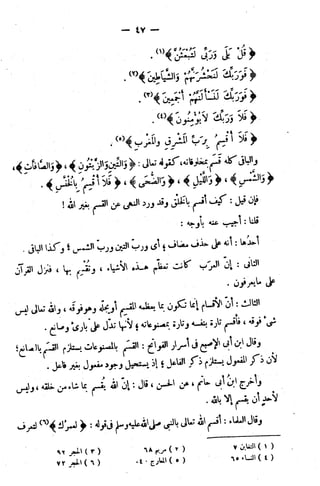 — ٤٧ —
﴿ قُلْ بَلَى وَرَبِّى لَتُبْعَثُنَّ ﴾(١).
﴿ فَوَرَبِّكَ لَنَحْشُرَنَّهُمْ وَالشَّيَاطِينَ ﴾(٢).
﴿ فَوَرَبِّكَ لَنَسْأَلَنَّهُمْ أَجْمَعِينَ ﴾(٣).
﴿ فَلَا وَرَبِّكَ لَا يُؤْمِنُونَ ﴾(٤).
﴿ فَلَا أُقْسِمُ بِرَبِّ الْمَشَرِقِ وَالْمَغْرِبِ ﴾(٥).
والباقى كله قسم بمخلوقاته، كقوله تعالى : ﴿ وَالتِّينِ وَالزَّيْتُونِ ﴾، ﴿ وَالصَّافَّاتِ ﴾،
﴿ وَالشَّمْسِ ﴾، ﴿ وَاللَّيْلِ ﴾، ﴿ وَالضُّحَى ﴾، ﴿ فَلَا أُقْسِمُ بِالْخُنَّسِ ﴾.
فإن قيل : كيف أقسم بالخلق وقد ورد النهى عن القسم بغير الله !
قلنا : أجيب عنه بأوجه :
أحدُها : أنه على حذف مضاف ؛ أى ورب التين ورب الشمس ؛ وكذا الباقى .
الثانى : إنّ العرَب كانت تعظّم هذه الأشياء ، وتُقسِم بها ، فنزل القرآن
على ما يعرفون .
الثالث : أنّ الأقسام إنما تكون بما يعظمه المقسِم أو يجلّه وهو فوقه ، والله تعالى ليس
شىء فوقه ، فأقسم تارة بنفسه وتارة بمصنوعاته ؛ لأنها تدلّ على بارئ وصانع .
وقال ابن أبى الإصبع فى أسرار الفواتح : القسَم بالمصنوعات يستلزم القسَم بالصانع ؛
لأن ذكر المفعول يستلزم ذكر الفاعل ؛ إذ يستحيل وجود مفعول بغير فاعل .
وأخرج ابنُ أبى حاتم ، عن الحسن ، قال : إنّ الله يُقسم بما شاء من خلقه ، وليس
لأحدٍ أن يقسم إلا بالله .
وقال العلماء : أقسم الله تعالى بالنبى صلى الله عليه وسلم فى قوله : ﴿ لَعَمْرُكَ ﴾(٦) لتعرف
(١) التغابن ٧ (٢) مريم ٦٨ (٣) الحجر ٩٢
(٤) النساء ٦٥ (٥) المعارج ٤٠ (٦) الحجر ٧٢